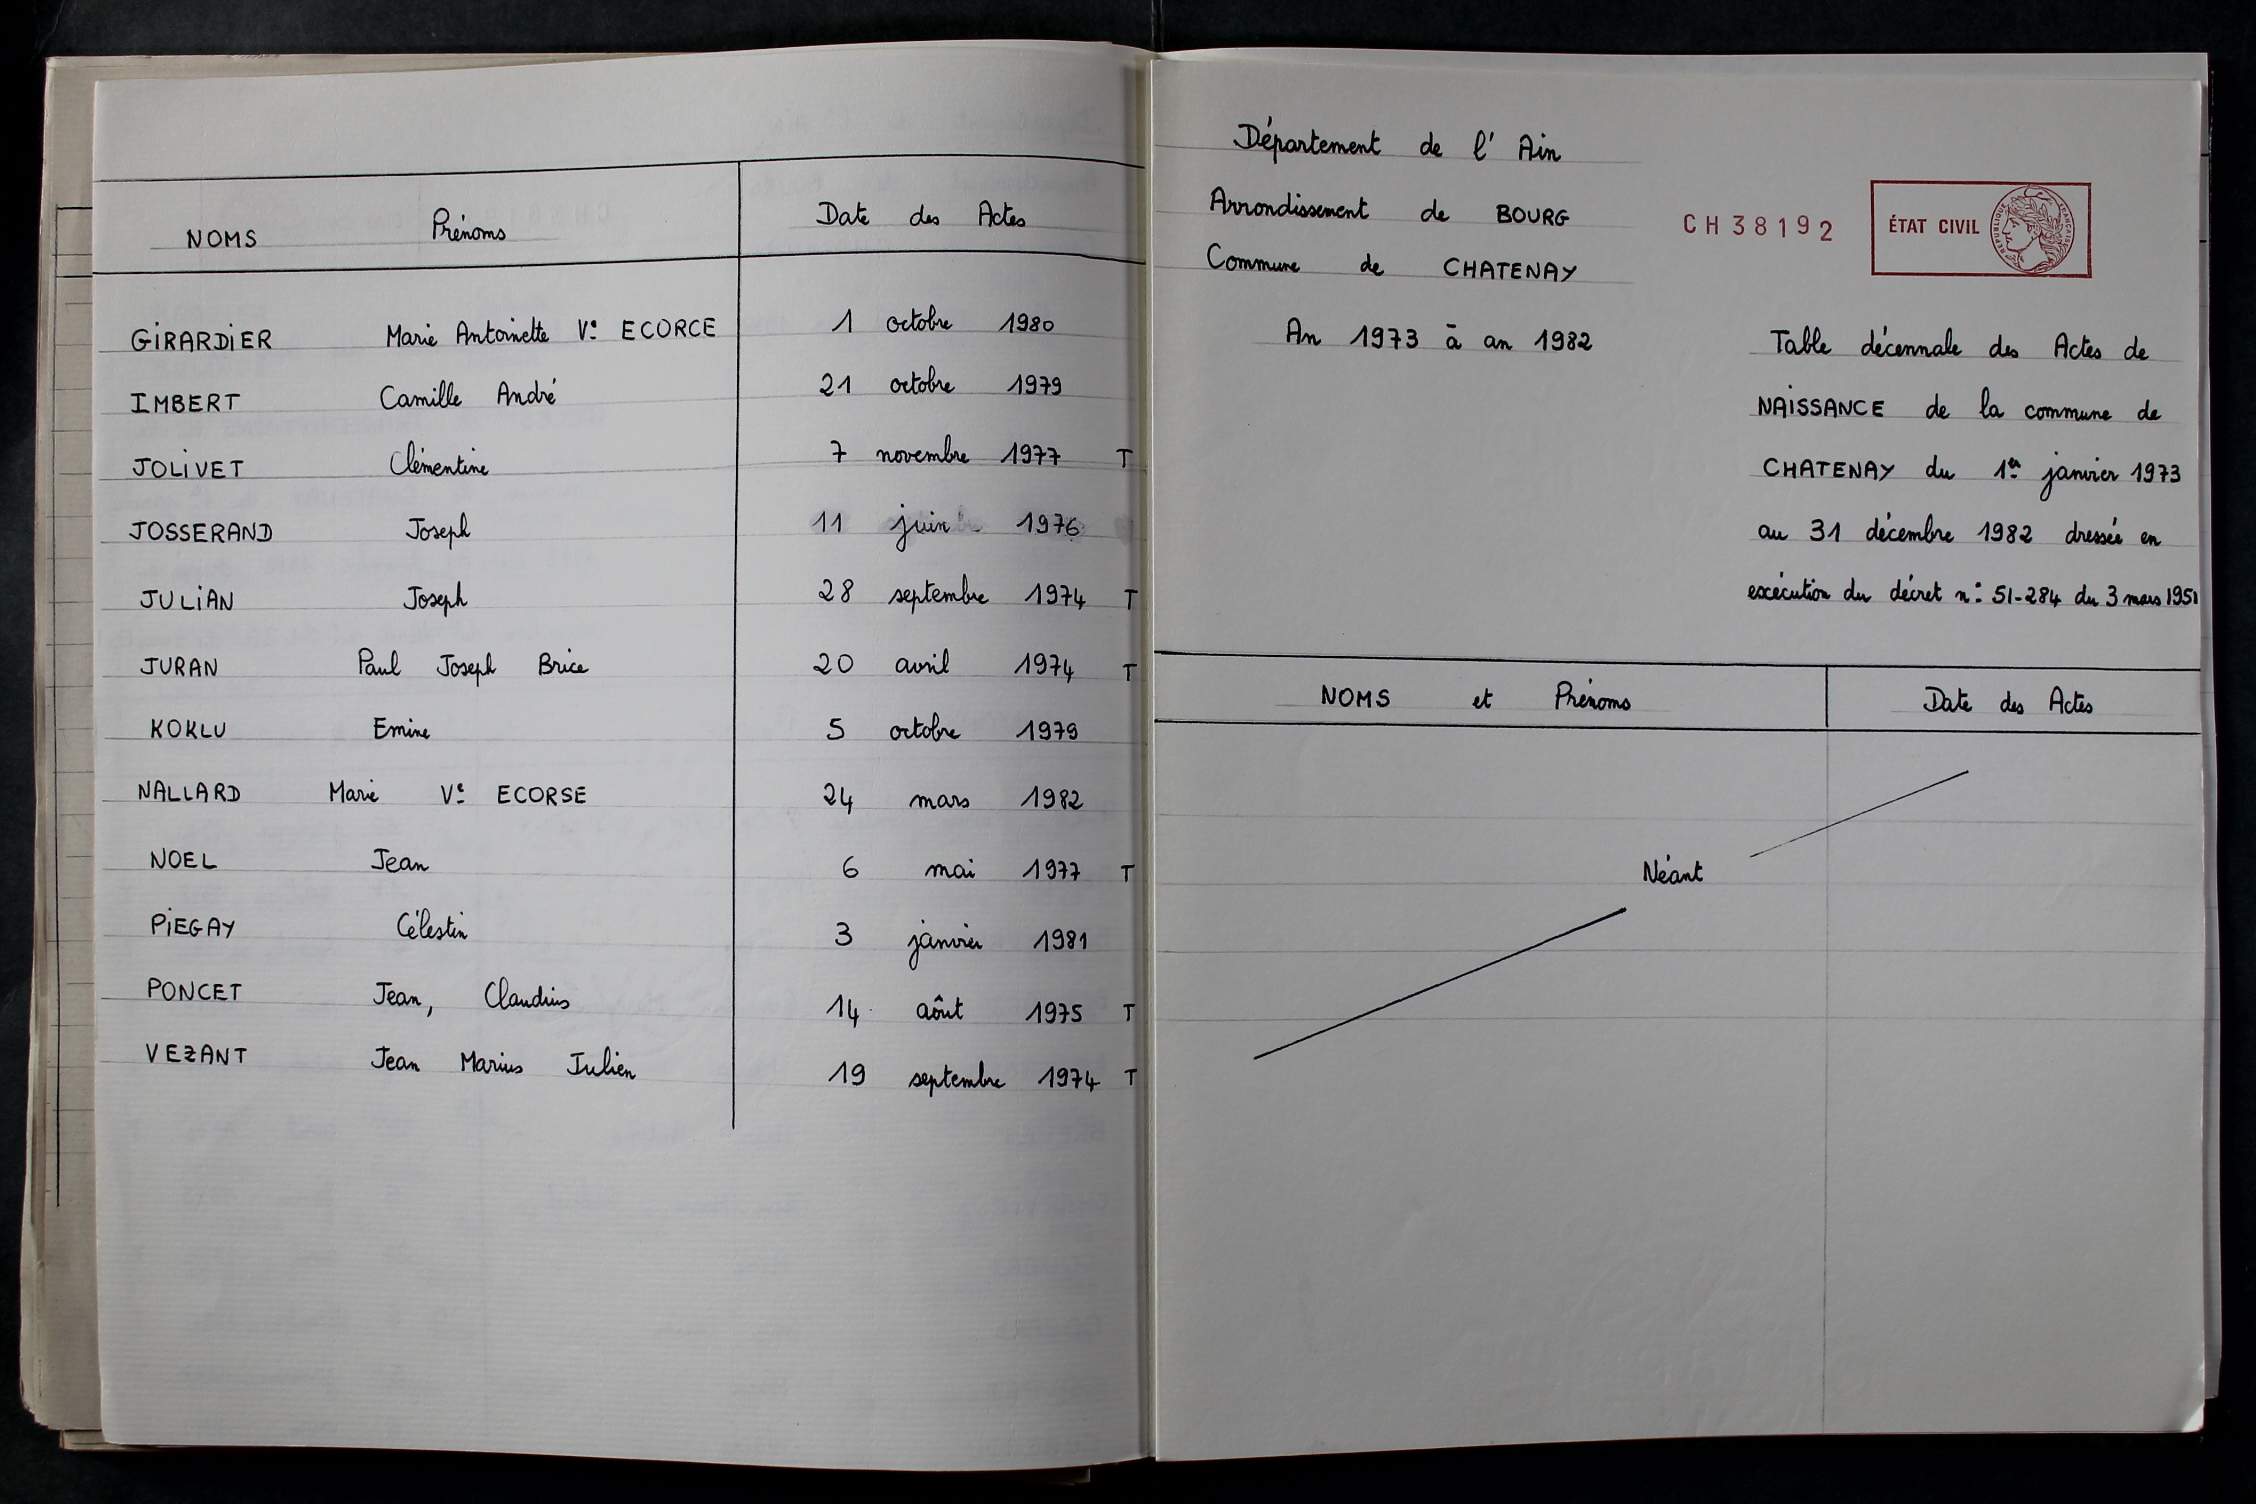 NOMS Prénoms Date des Actes
GIRARDIER Marie Antoinette Ve ECORCE 1 octobre 1980
IMBERT Camille André 21 octobre 1979
JOLIVET Clémentine 7 novembre 1977 T
JOSSERAND Joseph 11 juin 1976
JULIAN Joseph 28 septembre 1974 T
JURAN Paul Joseph Brice 20 avril 1974 T
KOKLU Emine 5 octobre 1979
NALLARD Marie Ve ECORSE 24 mars 1982
NOEL Jean 6 mai 1977 T
PIEGAY Célestin 3 janvier 1981
PONCET Jean, Claudius 14 août 1975 T
VEZANT Jean Marius Julien 19 septembre 1974 T
Département de l'Ain
Arrondissement de BOURG
Commune de CHATENAY
CH38192
ÉTAT CIVIL
RÉPUBLIQUE FRANÇAISE
An 1973 à an 1982
Table décennale des Actes de
NAISSANCE de la commune de
CHATENAY du 1er janvier 1973
au 31 décembre 1982 dressée en
exécution du décret n° 51-284 du 3 mars 1951
NOMS et Prénoms Date des Actes
Néant